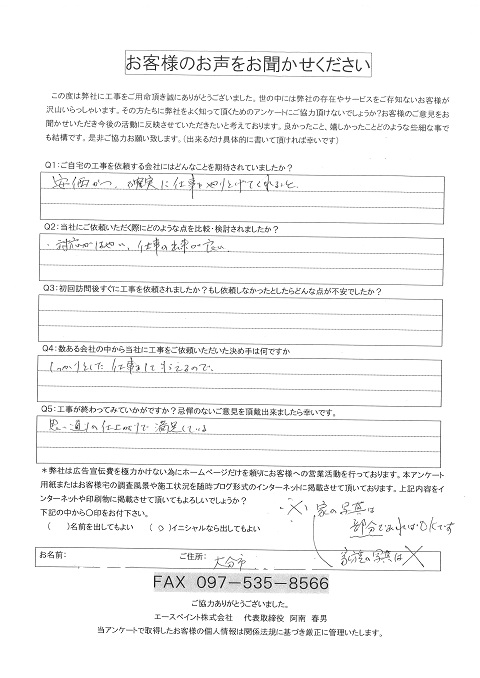 お客様のお声をお聞かせください
この度は弊社に工事をご用命頂き誠にありがとうございました。世の中には弊社の存在やサービスをご存知ないお客様が
沢山いらっしゃいます。その方たちに弊社をよく知って頂くためのアンケートにご協力頂けないでしょうか?お客様のご意見をお
聞かせいただき今後の活動に反映させていただきたいと考えております。良かったこと、嬉しかったことどのような些細な事で
も結構です。是非ご協力お願い致します。(出来るだけ具体的に書いて頂ければ幸いです)
Q1:ご自宅の工事を依頼する会社にはどんなことを期待されていましたか?
安価かつ、確実に仕事をやりとげてくれること。
Q2:当社にご依頼いただく際にどのような点を比較・検討されましたか?
・対応がはやい、仕事の出来が良い
Q3:初回訪問後すぐに工事を依頼されましたか?もし依頼しなかったとしたらどんな点が不安でしたか?
Q4:数ある会社の中から当社に工事をご依頼いただいた決め手は何ですか
しっかりとした仕事をしてもらえるので、
Q5:工事が終わってみていかがですか?忌憚のないご意見を頂戴出来ましたら幸いです。
思い通りの仕上がりで満足している
*弊社は広告宣伝費を極力かけない為にホームページだけを頼りにお客様への営業活動を行っております。本アンケート
用紙またはお客様宅の調査風景や施工状況を随時ブログ形式のインターネットに掲載させて頂いております。上記内容をイ
ンターネットや印刷物に掲載させて頂いてもよろしいでしょうか?
下記の中から〇印をお付下さい。
( )名前を出してもよい (○)イニシャルなら出してもよい
家の写真は
部分であればOKです
家族の写真は×
お名前: ご住所: 大分市
FAX 097-535-8566
ご協力ありがとうございました。
エースペイント株式会社 代表取締役 阿南 春男
当アンケートで取得したお客様の個人情報は関係法規に基づき厳正に管理いたします。